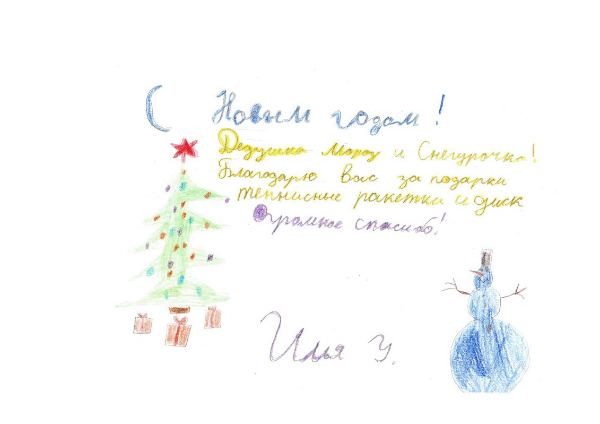 С Новым годом!
Дедушка Мороз и Снегурочка!
Благодарю вас за подарки
теннисные ракетки и диск
Огромное спасибо!
Илья У.